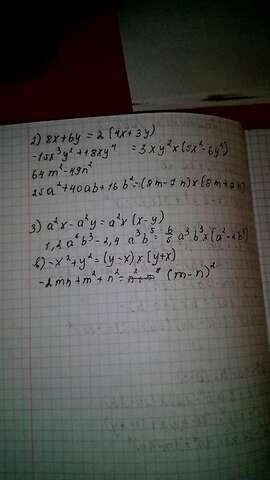 2) 8x+6y = 2(4x+3y)
-15x³y²+18xy⁴ = 3xy²×(5x²-6y²)
64m²-49n²
25a²+40ab+16b²=(8m-7n)×(8m+7n)
3) a²x-a²y=a²×(x-y)
1,2a⁶b³-2,4a³b⁵=6/5a³b³×(a³-2b²)
6) -x²+y²=(y-x)×(y+x)
-2mn+m²+n²= (m-n)²